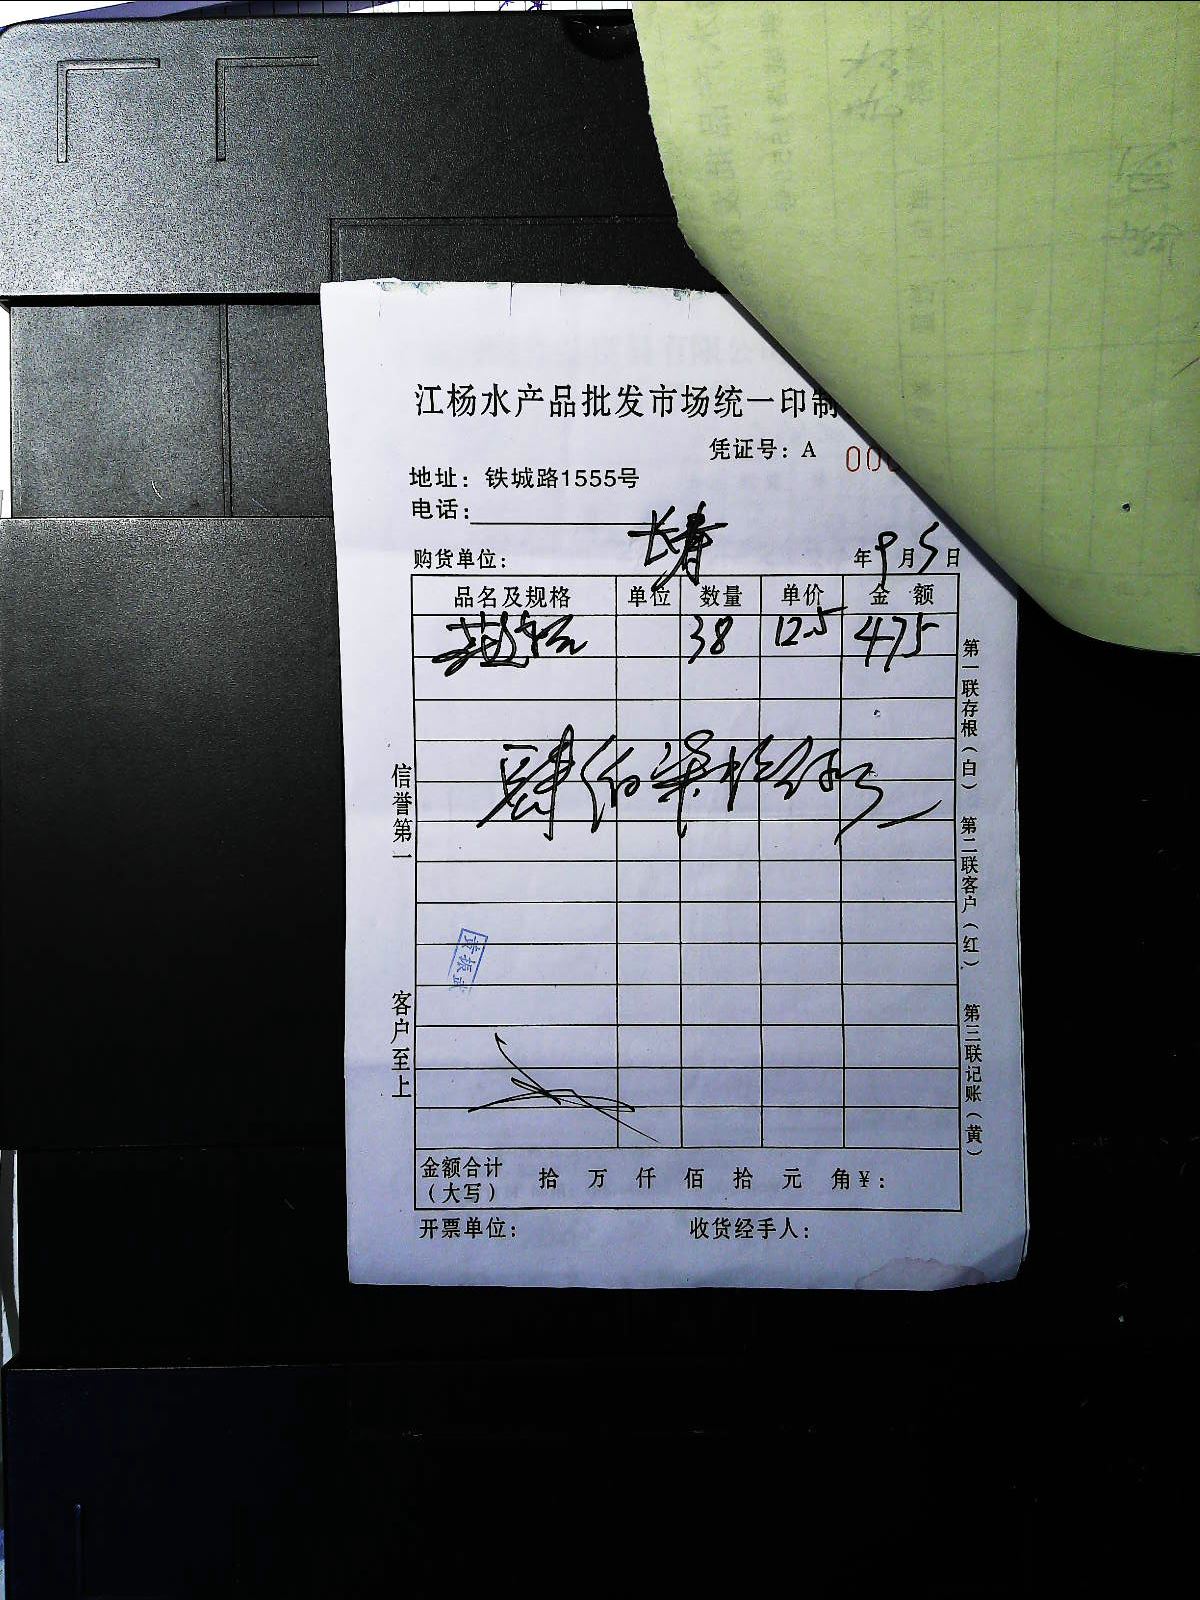 江杨水产品批发市场统一印制
凭证号：A 000
地址：铁城路1555号
电话：
购货单位： 长春 年 9 月 5 日
品名及规格 单位 数量 单价 金额
38 12.5 475
肆佰柒拾伍元
信誉第一
客户至上
第一联存根（白）
第二联客户（红）
第三联记账（黄）
金额合计（大写） 拾 万 仟 佰 拾 元 角 ¥：
开票单位： 收货经手人：